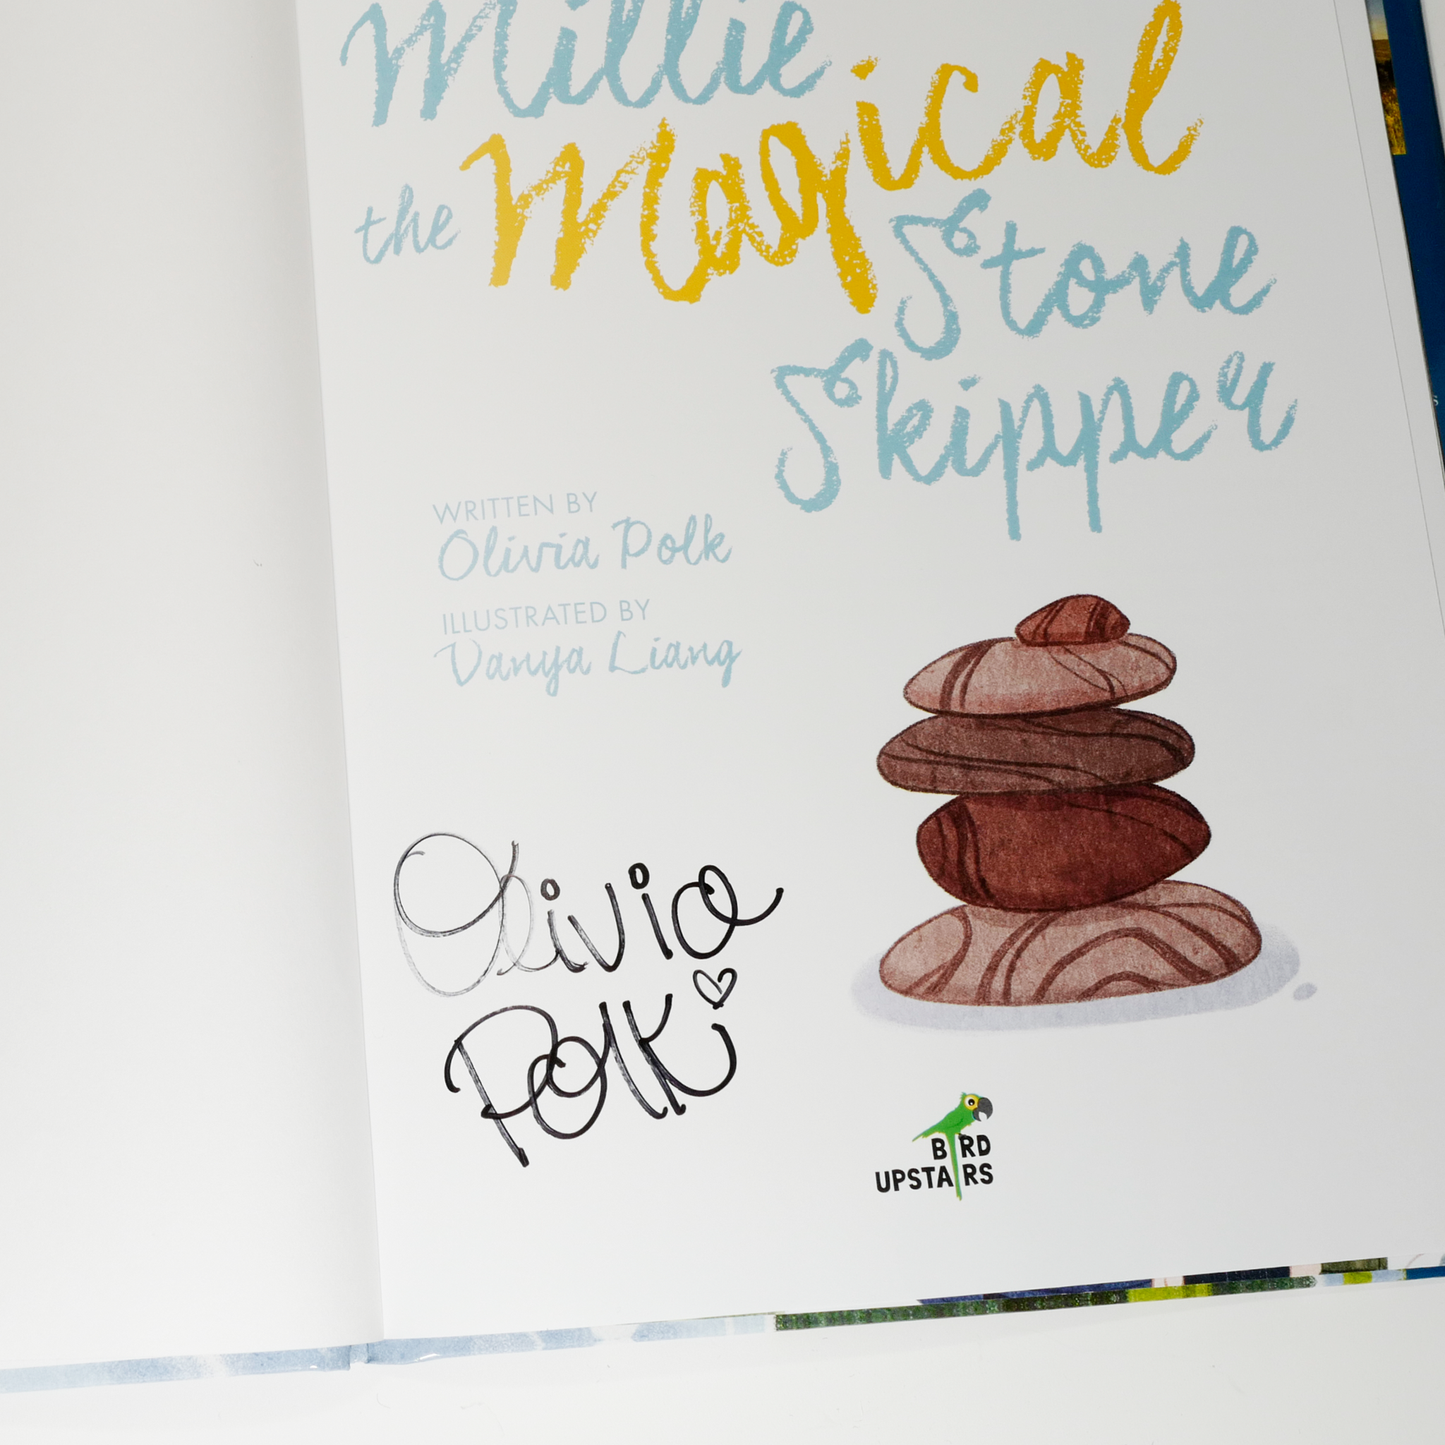 Millie
the Magical
Stone
Skipper
WRITTEN BY
Olivia Polk
ILLUSTRATED BY
Vanya Liang
Olivia
Polk
BIRD
UPSTAIRS